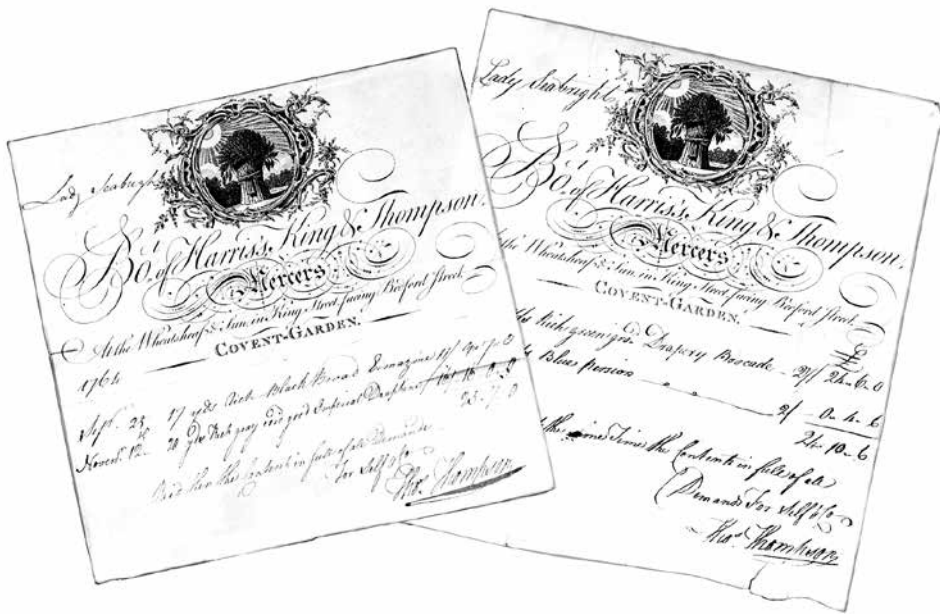 Lady Seabright
Bo.t of Harris's, King & Thompson,
Mercers
At the Wheatsheaf & Sun, in King Street, facing Bedford Street
COVENT-GARDEN.
1764
Sept. 25 17 yds Rich Black Broad 11/ 9-7-0
Novem.r 12 20 yds Rich gro.d Imperial 16-0-0
25-7-0
the Contents in full of all Demands
For Self & Co
Tho.s Thompson
Lady Seabright
Bo.t of Harris's, King & Thompson,
Mercers
the Wheatsheaf & Sun, in King Street, facing Bedford Street
COVENT-GARDEN.
£
Rich green gro.d Drapery Brocade 24-6-0
Blue persian 2/ 0-4-6
24-10-6
the same Time the Contents in full of all
Demands For Self & Co
Tho.s Thompson